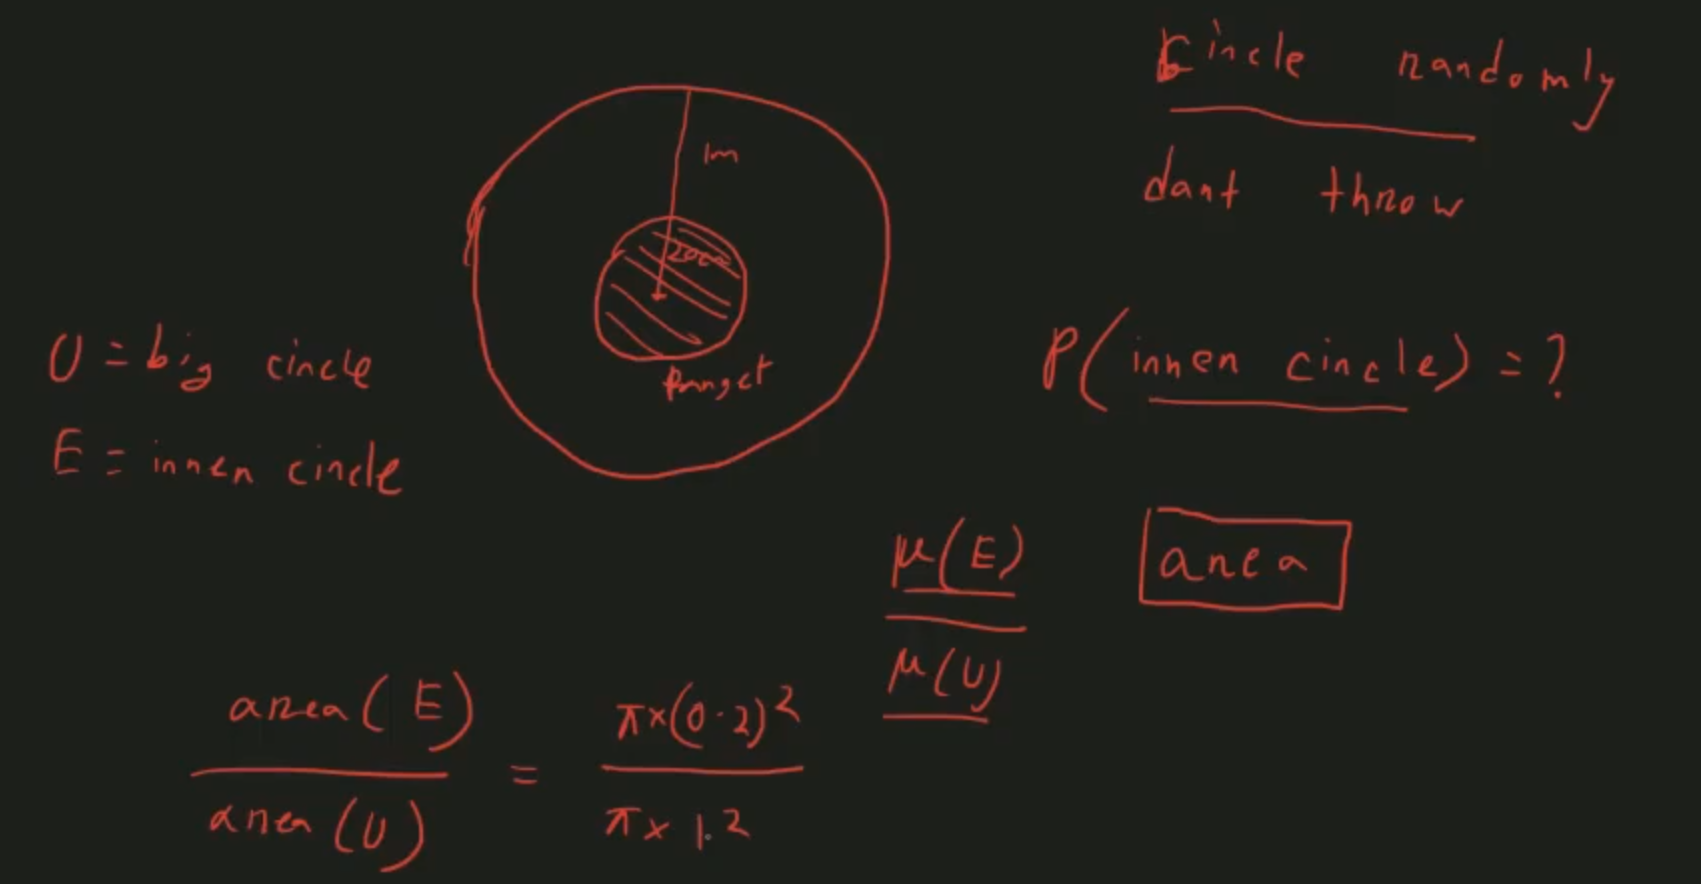 Circle randomly
dart throw
1m
20cm
U = big circle
E = inner circle
P(inner circle) = ?
μ(E)
μ(U)
area
area(E)
area(U)
=
π×(0.2)²
π×1.2